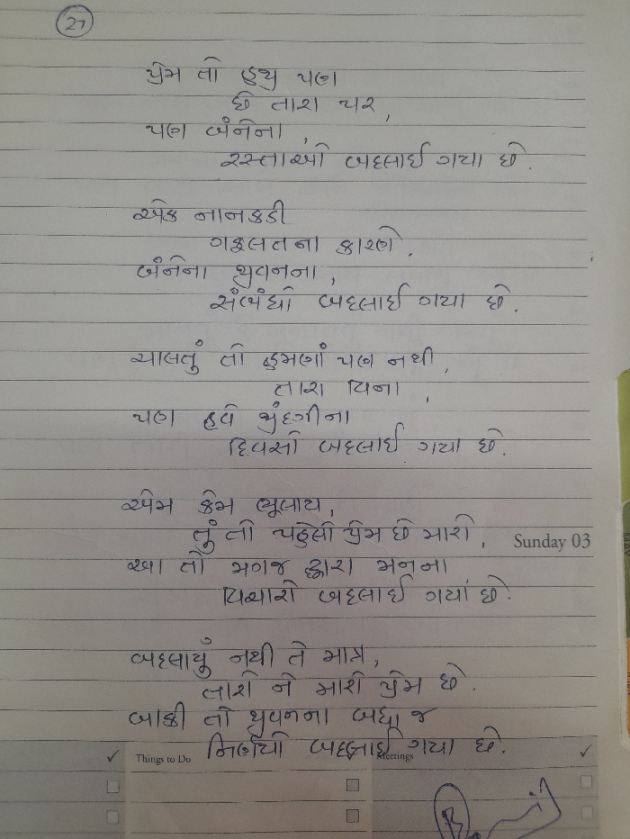 27
પ્રેમ તો હજુ પણ
છે તારા પર,
પણ બંનેના,
રસ્તાઓ બદલાઈ ગયા છે.
એક નાનકડી
ગફલતના કારણે,
બંનેના જીવનના,
સંબંધો બદલાઈ ગયા છે.
ચાલતું તો હમણાં પણ નથી,
તારા વિના,
પણ હવે જીંદગીના
દિવસો બદલાઈ ગયા છે.
એમ કેમ ભૂલાય,
તું તો પહેલો પ્રેમ છે મારો,
Sunday 03
આ તો મગજ દ્વારા મનના
વિચારો બદલાઈ ગયાં છે.
બદલાયું નથી તે માત્ર,
તારો ને મારો પ્રેમ છે.
બાકી તો જીવનના બધા જ
નિર્ણયો બદલાઈ ગયા છે.
Things to Do
Meetings